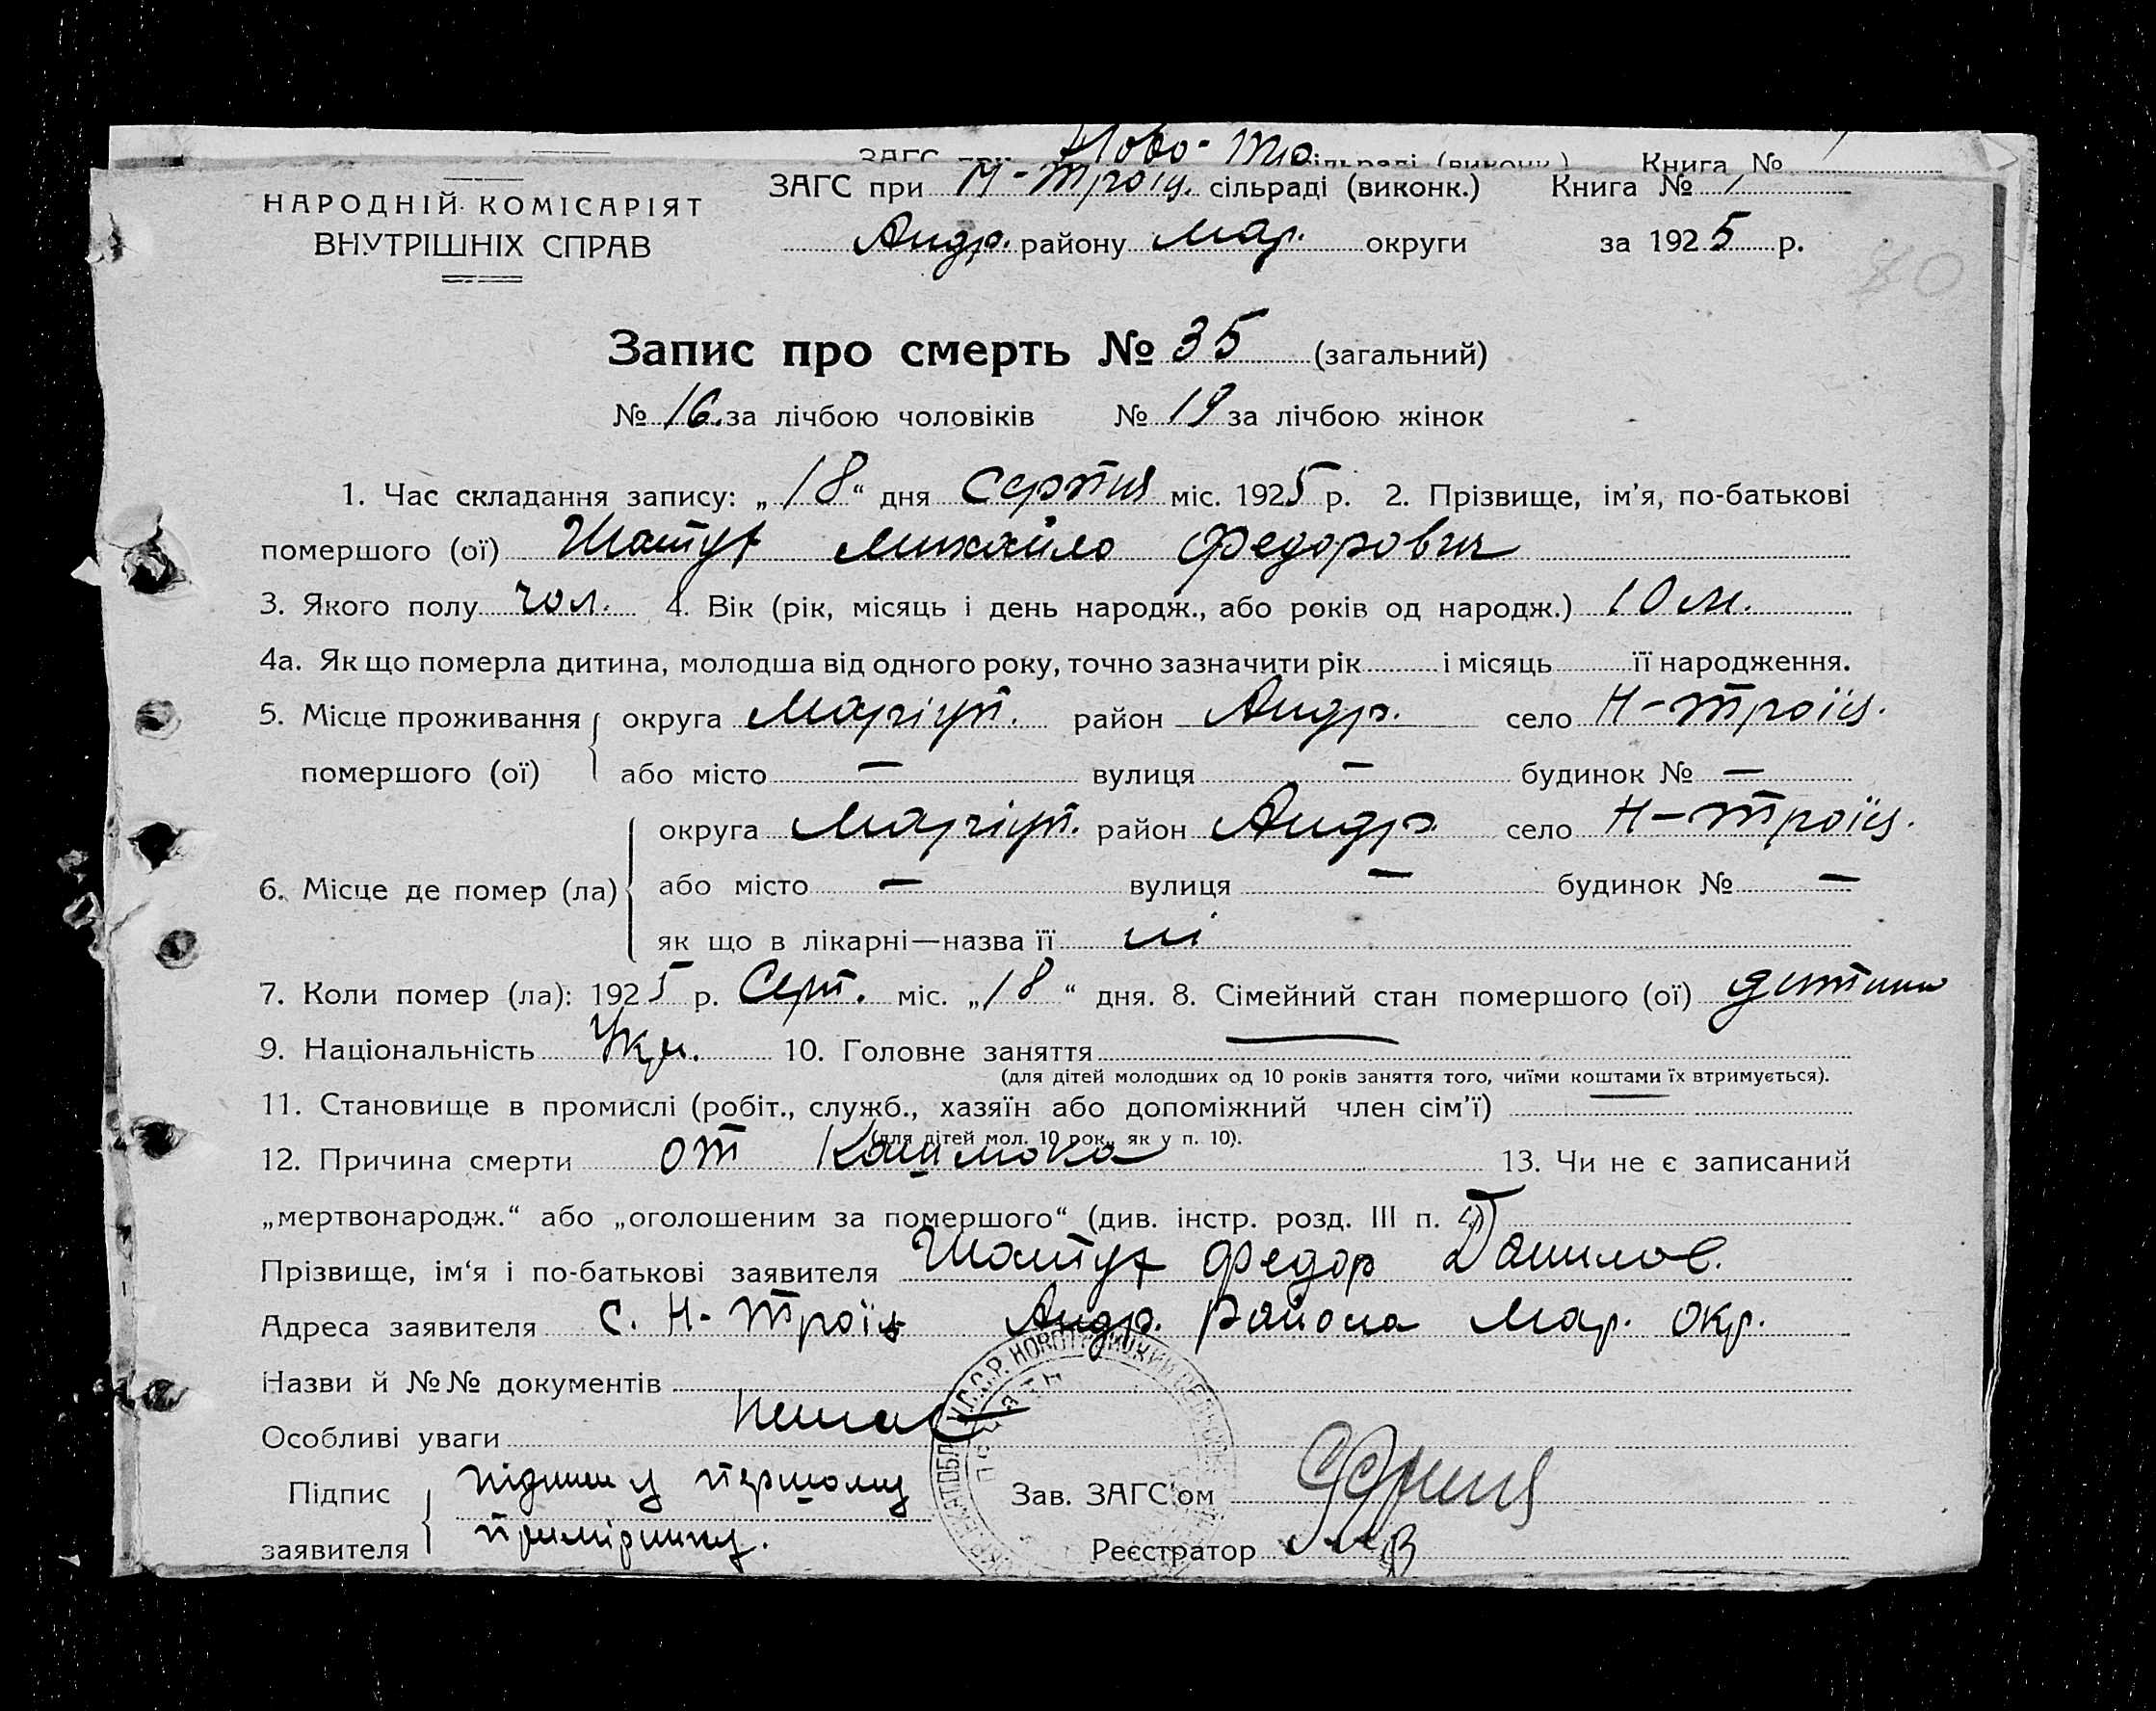 Ново-Тро
ЗАГС при сільраді (виконк.) Книга №
ЗАГС при Н-Троїц. сільраді (виконк.) Книга № 1
НАРОДНІЙ КОМІСАРІЯТ
ВНУТРІШНІХ СПРАВ
Андр. району Мар. округи за 1925 р.
Запис про смерть № 35 (загальний)
№ 16. за лічбою чоловіків № 19 за лічбою жінок
1. Час складання запису: „18“ дня Серпня міс. 1925 р. 2. Прізвище, ім’я, по-батькові
помершого (ої) Михайло Федорович
3. Якого полу чол. 4. Вік (рік, місяць і день народж., або років од народж.) 10 м.
4а. Як що померла дитина, молодша від одного року, точно зазначити рік і місяць її народження.
5. Місце проживання округа Маріуп. район Андр. село Н-Троїц.
помершого (ої) або місто — вулиця — будинок № —
округа Маріуп. район Андр. село Н-Троїц.
6. Місце де помер (ла) або місто — вулиця — будинок № —
як що в лікарні—назва її ні
7. Коли помер (ла): 1925 р. Серп. міс. „18“ дня. 8. Сімейний стан помершого (ої) дитина
9. Національність Укр. 10. Головне заняття —
(для дітей молодших од 10 років заняття того, чиїми коштами їх втримується).
11. Становище в промислі (робіт., служб., хазяїн або допоміжний член сім’ї) —
(для дітей мол. 10 рок., як у п. 10).
12. Причина смерти от Кашлюка 13. Чи не є записаний
„мертвонародж.“ або „оголошеним за помершого“ (див. інстр. розд. III п.
Прізвище, ім‘я і по-батькові заявителя Федор Данилов.
Адреса заявителя с. Н-Троїц Андр. Района Мар. Окр.
Назви й №№ документів
Особливі уваги Немає
Підпис підпис у першому Зав. ЗАГС’ом
заявителя примірнику. Реєстратор